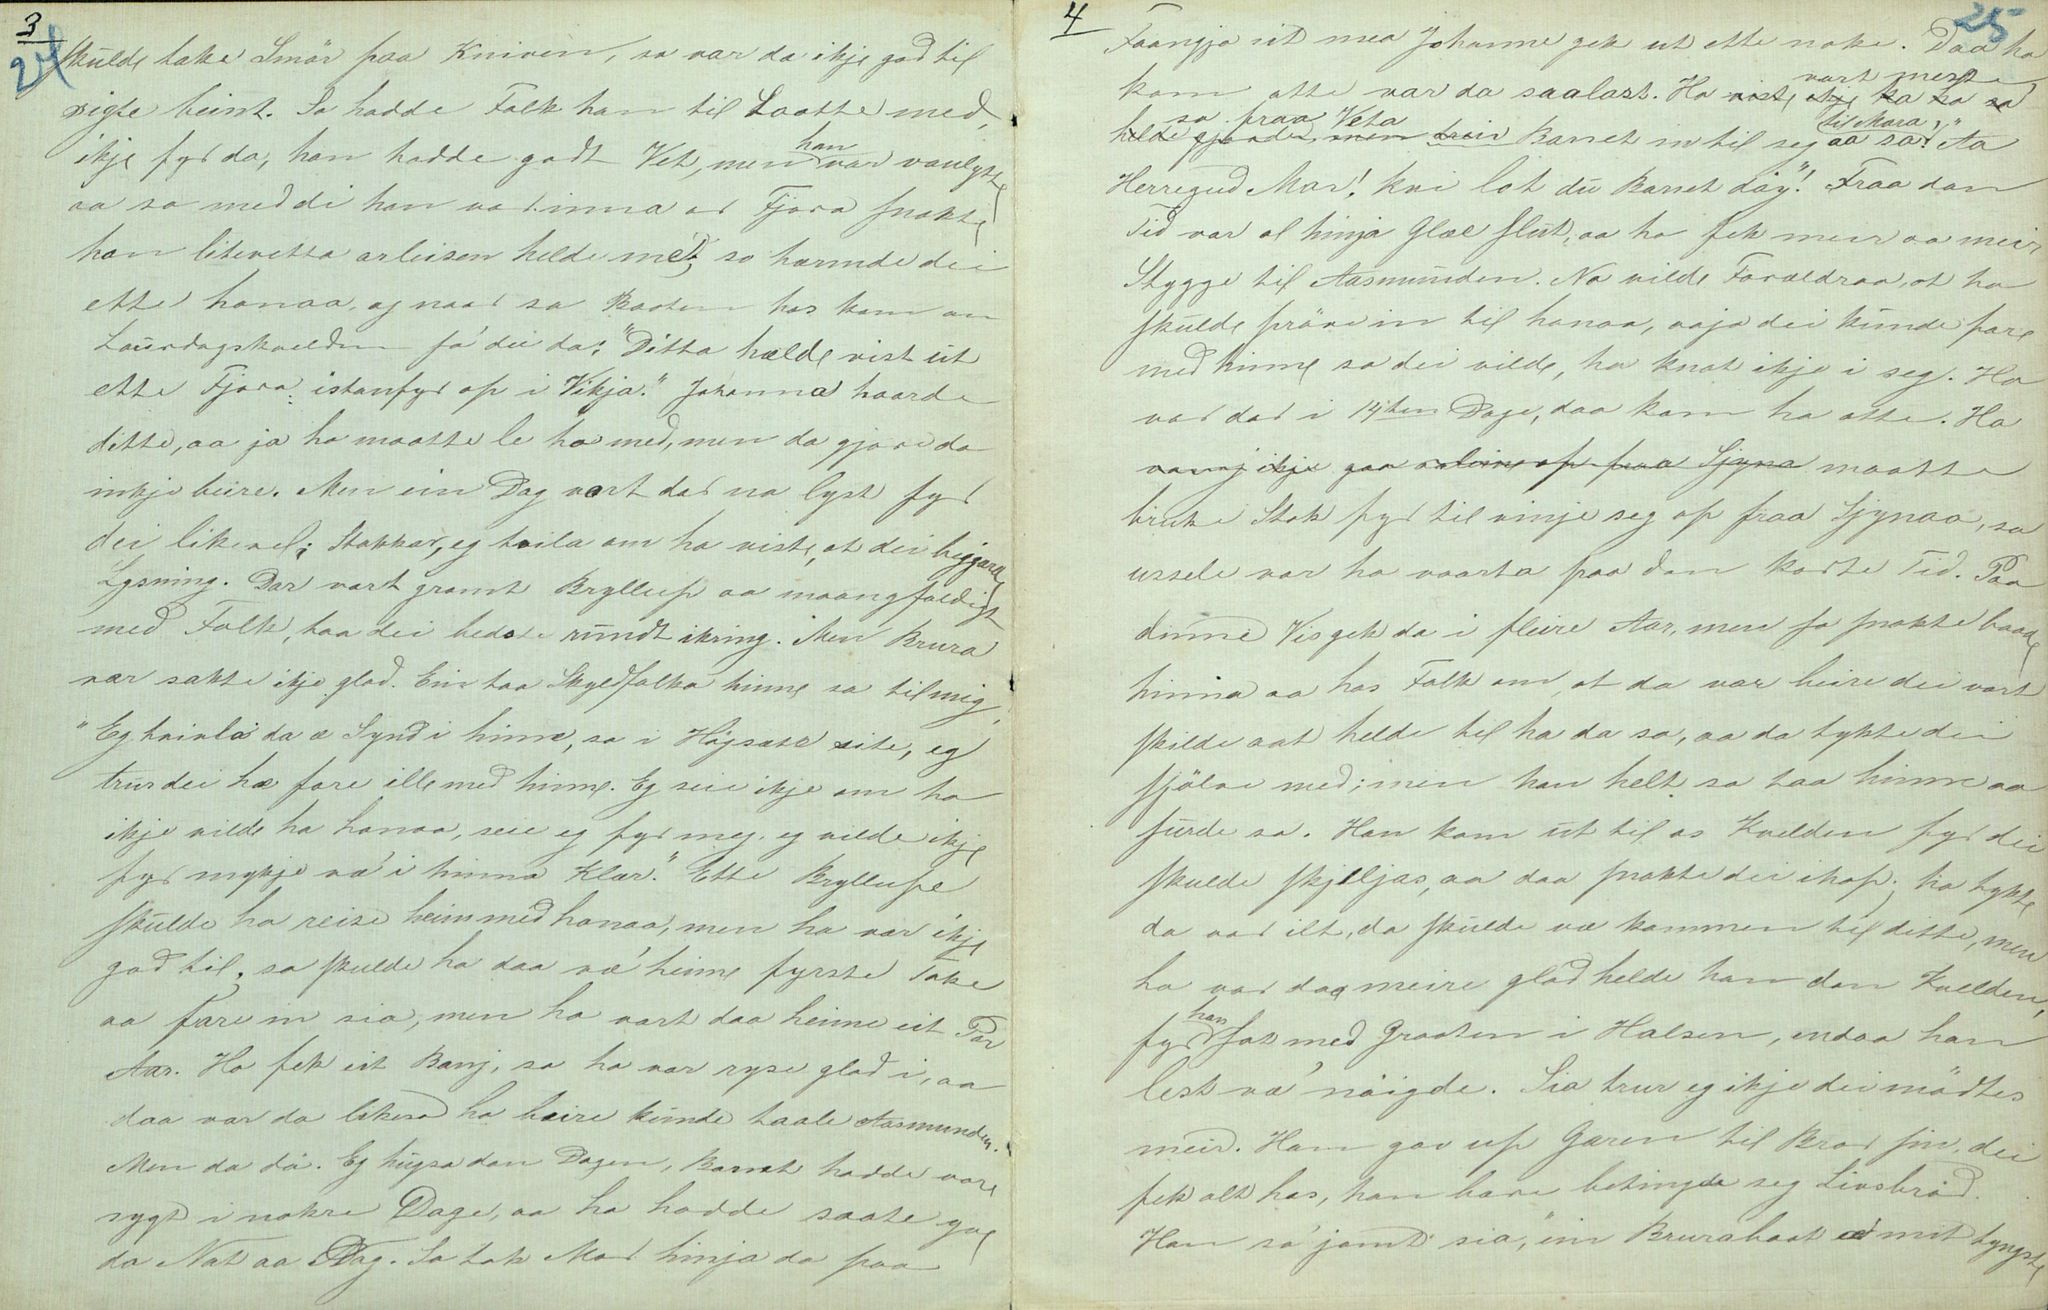 3
24
skulde take Smör paa Kniven, so var da ikje god til
rigte beint. So hadde Folk han til Laatte med,
ikje fyr da, han hadde godt Vet, men han var vanlyste
aa so med di han var inna ar Fjora snakte
han litevetta arleisen helde me, so hermde dei
ette honaa, og naar so Baaten has kom um
Laurdagskvelden sa' dei da: "Ditta hælde vist ut
ette Fjora istanfyr op i Vikja." Johanna haarde
ditte, aa ja ho maatte le ho med, men da gjore da
inkje beire. Men ein Dag vart dar no lyst fyr
dei likevel; Stakkar, eg tvila om ho viste, at dei begjærde
Lysning. Dar vart gromt Bryllup aa maangfaldigt
med Folk, taa dei beste rundt ikring. Men Brura
var sakte ikje glad. Ein taa Skyldfolka hinna sa til mig,
"Eg tvivla da æ Synd i hinne, so i Högsæte site, eg
trur dei hæ fare ille med hinne. Eg seie ikje om ho
ikje vilde ha honaa, seie eg fyr meg, eg vilde ikje
fyr mykje væ' i hinna Klær." Ette Bryllupe
skulde ho reise heim med honaa, men ho var ikje
god til, so skulde ho daa væ' heime fyrste Take
aa fare in sia, men ho vart daa heime eit Par
Aar. Ho fek eit Banj, so ho var ryse glad i, aa
daa var da likeso ho beire kunde taale Aasmunden.
Men da dö. Eg hugsa dan Dagen, Barnet hadde vore
sygt i nokre Dage, aa ho hadde saate yve
da Nat aa Dag. So tok Mor hinja da paa
4
25
Faangja sit mea Johanne gek ut ette noke. Daa ho
kom atte var da saalast. Ho viste ikje ka ho sa vart meste
helde gjorde, men dreiv so fraa Veta Barnet in til seg aa sa til Mora: "Aa
Herregud Mor! kvi lot du Barnet döy"! Fraa dan
Tid var al hinja Glæe slut, aa ho fek meir aa meir
Stygge til Aasmunden. No vilde Foreldraa, at ho
skulde pröve in til honaa, aaja dei kunde fare
med hinne so dei vilde, ho knat ikje i seg. Ho
var dar i 14ten Dage, daa kom ho atte. Ho
vanj ikje gaa aaleine op fraa Sjyna maatte
bruke Stok fyr til vinje seg op fraa Sjynaa, so
ussele var ho vaarta paa dan korte Tid. Paa
dinne Vis gek da i fleire Aar, men so snakte baade
hinna aa has Folk om, at da var beire dei vart
skilde aat helde til ha da so, aa da tykte dei
sjölve med; men han helt so taa hinne aa
surde so. Han kom ut til os Kvelden fyr dei
skulde skjiljas, aa daa snakte dei ihop; ho tykte
da var ilt, da skulde væ kommen til ditte, men
ho var dog meire glad helde han dan Kvelden,
fyr han sat med Graaten i Halsen, endaa han
lest væ' nöigde. Sia trur eg ikje dei mödtes
meir. Han gav up Garen til Bror sin, dei
fek alt has, han bare betingde seg Livsbröd.
Han sa' jamt sia, "ein Brurabaat æ mit tyngste